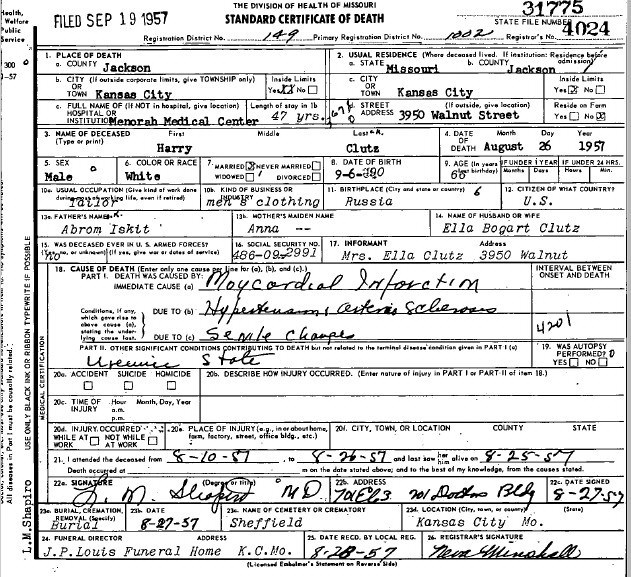 Health,
Welfare
Public
Service
300
1-57
FILED SEP 19 1957
THE DIVISION OF HEALTH OF MISSOURI
STANDARD CERTIFICATE OF DEATH
31775
STATE FILE NUMBER
Registration District No. 149 Primary Registration District No. 1002 Registrar's No. 4024
1. PLACE OF DEATH
a. COUNTY Jackson
2. USUAL RESIDENCE (Where deceased lived. If institution: Residence before admission)
a. STATE Missouri b. COUNTY Jackson
b. CITY (If outside corporate limits, give TOWNSHIP only) OR TOWN Kansas City
Inside Limits Yes XX No
c. CITY OR TOWN Kansas City
Inside Limits Yes X No
c. FULL NAME OF (If NOT in hospital, give location) HOSPITAL OR INSTITUTION Menorah Medical Center
Length of stay in 1b 47 yrs.
d. STREET ADDRESS (If outside, give location) 3950 Walnut Street
Reside on Farm Yes No X
3. NAME OF DECEASED (Type or print) First Middle Last
Harry Clutz
4. DATE OF DEATH Month Day Year
August 26 1957
5. SEX Male
6. COLOR OR RACE White
7. MARRIED X NEVER MARRIED WIDOWED DIVORCED
8. DATE OF BIRTH 9-6-
9. AGE (In years
IF UNDER 1 YEAR Months Days
IF UNDER 24 HRS. Hours Min.
10a. USUAL OCCUPATION (Give kind of work done during most of working life, even if retired) Tailor
10b. KIND OF BUSINESS OR INDUSTRY men's clothing
11. BIRTHPLACE (City and state or country) Russia
12. CITIZEN OF WHAT COUNTRY? U.S.
13a. FATHER'S NAME Abrom Iskit
13b. MOTHER'S MAIDEN NAME Anna --
14. NAME OF HUSBAND OR WIFE Ella Bogart Clutz
15. WAS DECEASED EVER IN U. S. ARMED FORCES? (Yes, no, or unknown) (If yes, give war or dates of service) No
16. SOCIAL SECURITY NO. 486-09-2991
17. INFORMANT Address
Mrs. Ella Clutz 3950 Walnut
18. CAUSE OF DEATH (Enter only one cause per line for (a), (b), and (c).)
PART I. DEATH WAS CAUSED BY:
IMMEDIATE CAUSE (a) Moycardial Infarction
INTERVAL BETWEEN ONSET AND DEATH
Conditions, if any, which gave rise to above cause (a), stating the underlying cause last.
DUE TO (b) Hypertension, arterio sclerosis
DUE TO (c) Senile Changes
4201
PART II. OTHER SIGNIFICANT CONDITIONS CONTRIBUTING TO DEATH but not related to the terminal disease condition given in PART I (a)
Uremic State
19. WAS AUTOPSY PERFORMED? YES NO
20a. ACCIDENT SUICIDE HOMICIDE
20b. DESCRIBE HOW INJURY OCCURRED. (Enter nature of injury in PART I or PART II of item 18.)
20c. TIME OF INJURY Hour Month, Day, Year
a.m.
p.m.
20d. INJURY OCCURRED WHILE AT WORK NOT WHILE AT WORK
20e. PLACE OF INJURY (e.g., in or about home, farm, factory, street, office bldg., etc.)
20f. CITY, TOWN, OR LOCATION COUNTY STATE
21. I attended the deceased from 8-10-57, to 8-26-57 and last saw her him alive on 8-25-57
Death occurred at m on the date stated above; and to the best of my knowledge, from the causes stated.
22a. SIGNATURE (Degree or title)
L. M. Shapiro MD
22b. ADDRESS 701 Doctors Bldg
22c. DATE SIGNED 8-27-57
23a. BURIAL, CREMATION, REMOVAL (Specify) Burial
23b. DATE 8-27-57
23c. NAME OF CEMETERY OR CREMATORY Sheffield
23d. LOCATION (City, town, or county) (State) Kansas City Mo.
24. FUNERAL DIRECTOR ADDRESS
J.P.Louis Funeral Home K.C.Mo.
25. DATE RECD. BY LOCAL REG. 8-28-57
26. REGISTRAR'S SIGNATURE Neva Minshall
(Licensed Embalmer's Statement on Reverse Side)
MEDICAL CERTIFICATION
USE ONLY BLACK INK OR RIBBON TYPEWRITE IF POSSIBLE
All diseases in Part I must be causally related.
L.M.Shapiro